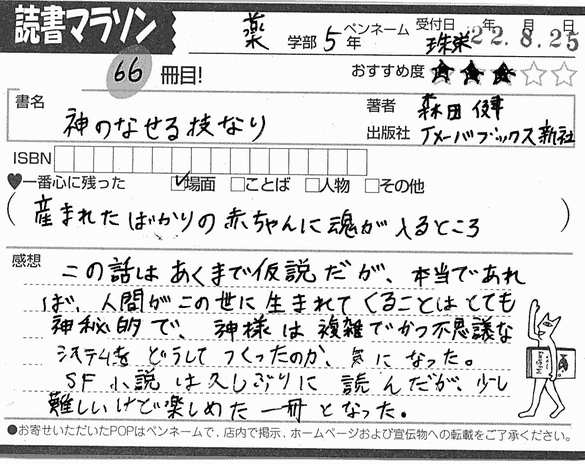 読書マラソン
薬 学部 5 年 ペンネーム 珠栄 受付日 年 月 日 22.8.25
66 冊目! おすすめ度 ★★★☆☆
書名 神のなせる技なり
著者 森田 俊華
出版社 アメーバブックス新社
ISBN
♥一番心に残った ☑場面 □ことば □人物 □その他
(産まれたばかりの赤ちゃんに魂が入るところ)
感想
この話はあくまで仮説だが、本当であれ
ば、人間がこの世に生まれてくることはとても
神秘的で、神様は複雑でかつ不思議な
システムをどうしてつくったのか、気になった。
SF小説は久しぶりに読んだが、少し
難しいけど楽しめた一冊となった。
●お寄せいただいたPOPはペンネームで、店内で掲示、ホームページおよび宣伝物への転載をご了承ください。